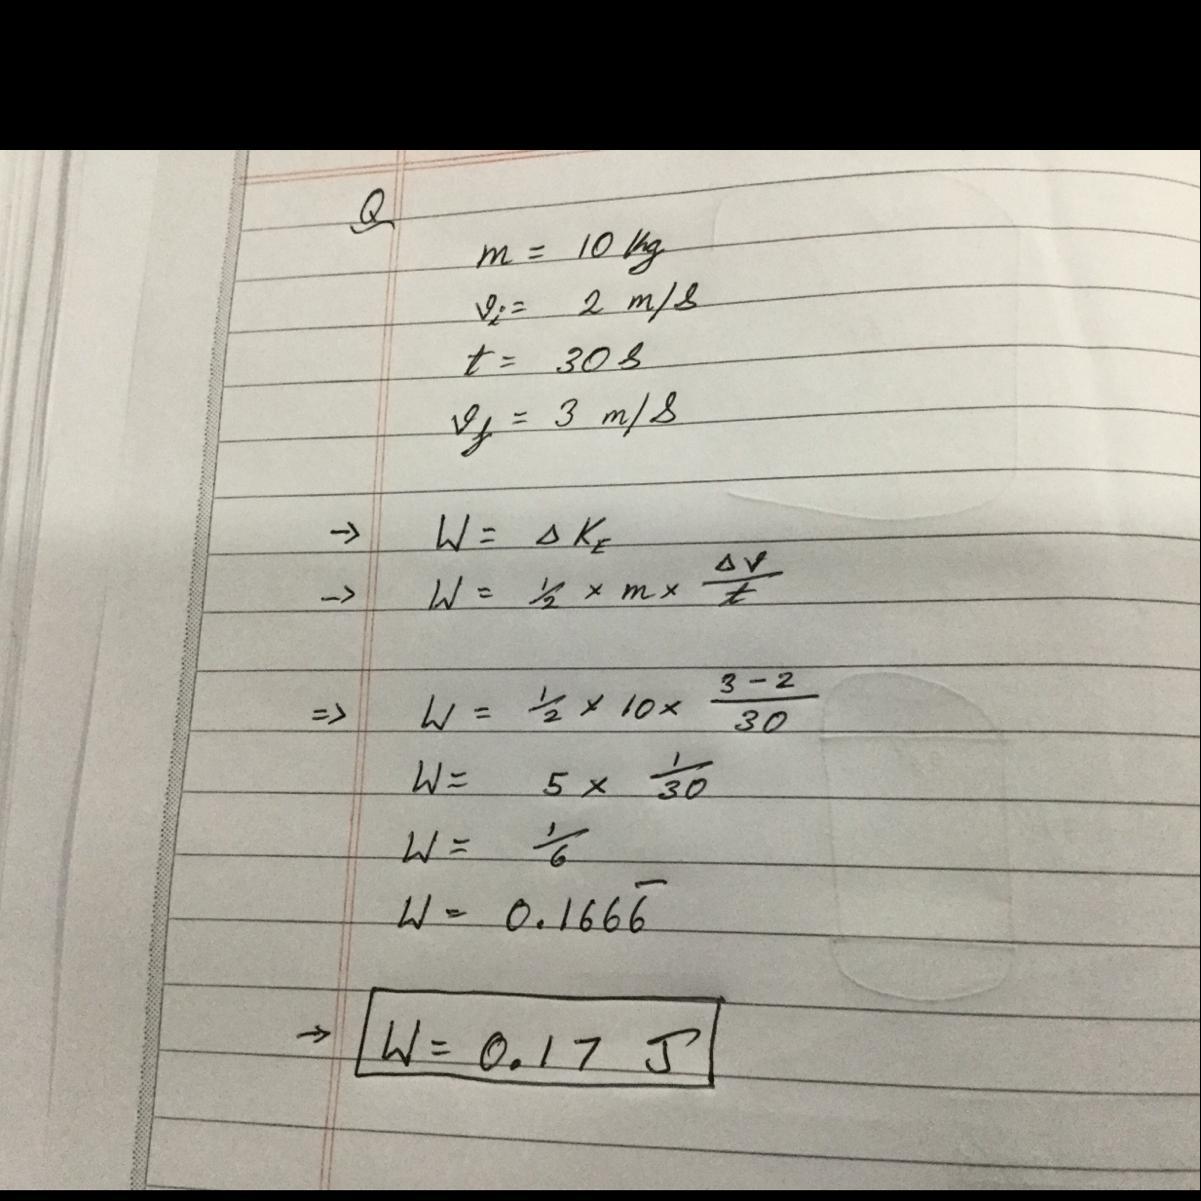 Q
m = 10 kg
vi = 2 m/s
t = 30 s
vf = 3 m/s
→ W = Δ KE
→ W = 1/2 × m × Δv/t
⇒ W = 1/2 × 10 × 3 - 2/30
W = 5 × 1/30
W = 1/6
W = 0.1666̅
→ W = 0.17 J